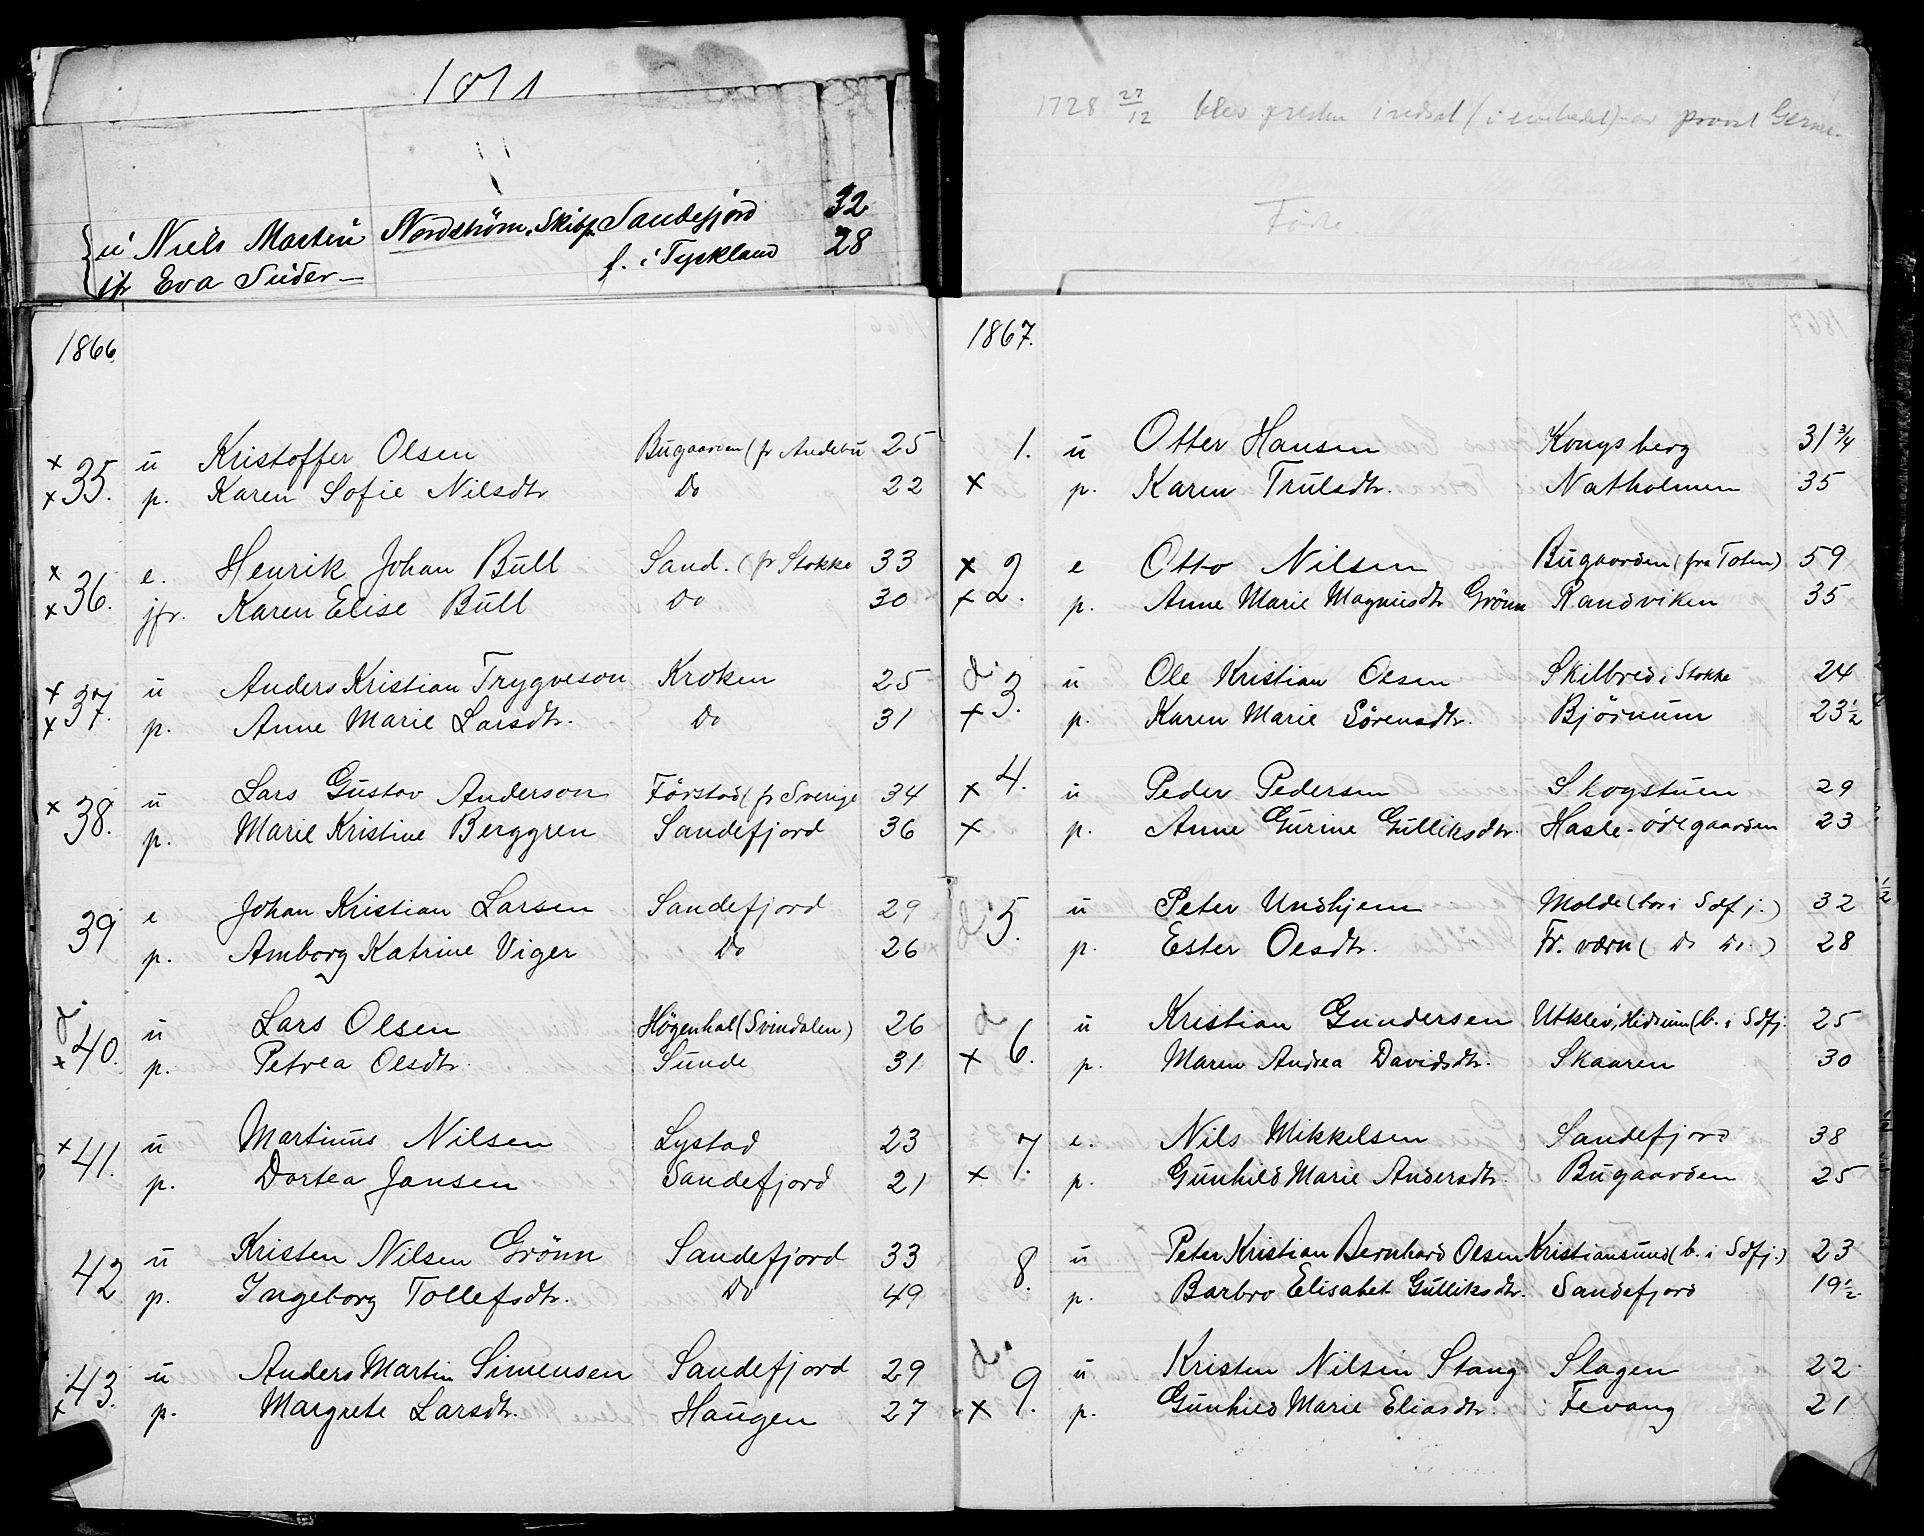 1871
ü Niels Martin Nordström, Skibsf. Sandefjord 32
jfr Eva Suder— f. i Tyskland 28
1866
x 35. ü Kristoffer Olsen Bugaarden (fr Andebu 25
x p. Karen Sofie Nilsdtr Do 22
x 36. e. Henrik Johan Bull Sand. (fr Stokke 33
x jfr. Karen Elise Bull Do 30
x 37. ü Anders Kristian Trygveson Kroken 25
x p. Anne Marie Larsdtr. Do 31
x 38. ü Lars Gustav Anderson Förstad (fr Sverige 34
p. Marie Kristine Berggren Sandefjord 36
39 e Johan Kristian Larsen Sandefjord 29
p. Amborg Katrine Viger Do 26
d. 40. ü Lars Olsen Högenhal (Svindalen) 26
x p. Petrea Olsdtr. Sunde 31
x 41. ü Martinus Nilsen Lystad 23
p. Dortea Jansen Sandefjord 21
42 ü Kristen Nilsen Grönn Sandefjord 33
p. Ingeborg Tollefsdtr. Do 49
43. ü Anders Martin Simensen Sandefjord 29
x p. Margrete Larsdtr. Haugen 27
1728 27/12 blev presten indsat (i embedet) av provst
Födte.
1867.
1. ü Otter Hansen Kongsberg 31 3/4
x p. Karen Trulsdtr. Natholmen 35
x 2 e Otto Nilsen Bugaarden (fra Toten) 59
x 2. p. Anne Marie Magnusdtr Grönn Randviken 35
d. 3. ü Ole Kristian Olsen Skilbred i Stokke 24
x p. Karen Marie Sörensdtr. Bjørnum 23 1/2
x 4. ü Peder Pedersen Skogstuen 29
x p. Anne Gurine Gulliksdtr. Hasle-ödegaarden 23
d. 5. ü Peter Undhjem Molde (bor i Sdfj.) 32 1/2
p. Ester Olsdtr. Fr. værn (Do Do.) 28
d 6. ü Kristian Gundersen Utklev, Hedrum (b. i Sdfj. 25
x p. Maren Andrea Davidsdtr. Skaaren 30
7. e. Nils Mikkelsen Sandefjord 38
x p. Gunhild Marie Andersdtr. Bugaarden 25
8. ü Peter Kristian Bernhard Olsen Kristiansund (b. i Sdfj.) 23
p. Barbro Elisabet Gulliksdtr. Sandefjord 19 1/2
d. 9. ü Kristen Nilsen Stang Slagen 22
x p. Gunhild Marie Eliasdtr. Fevang 21